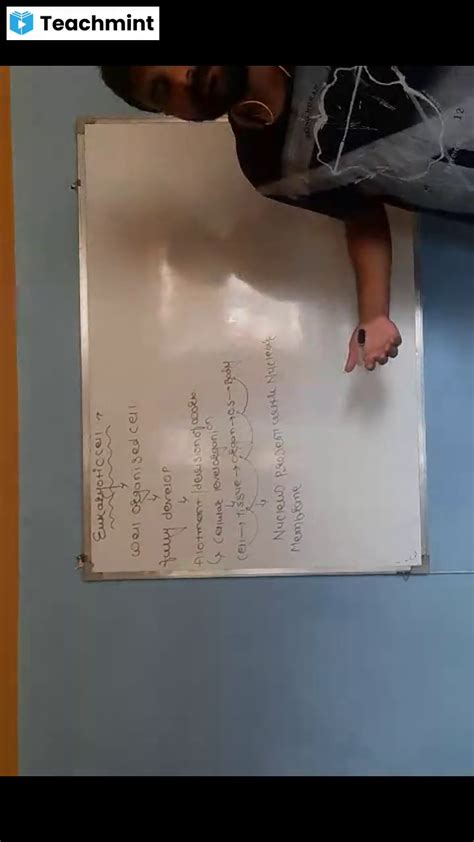 Teachmint
Eukaryotic Cell →
Well organised Cell
fully develop
Allotment / devision of
Cellular
Cell → Tissue → organ → OS → Body
Nucleus Present with Nuclear
Membrane
12